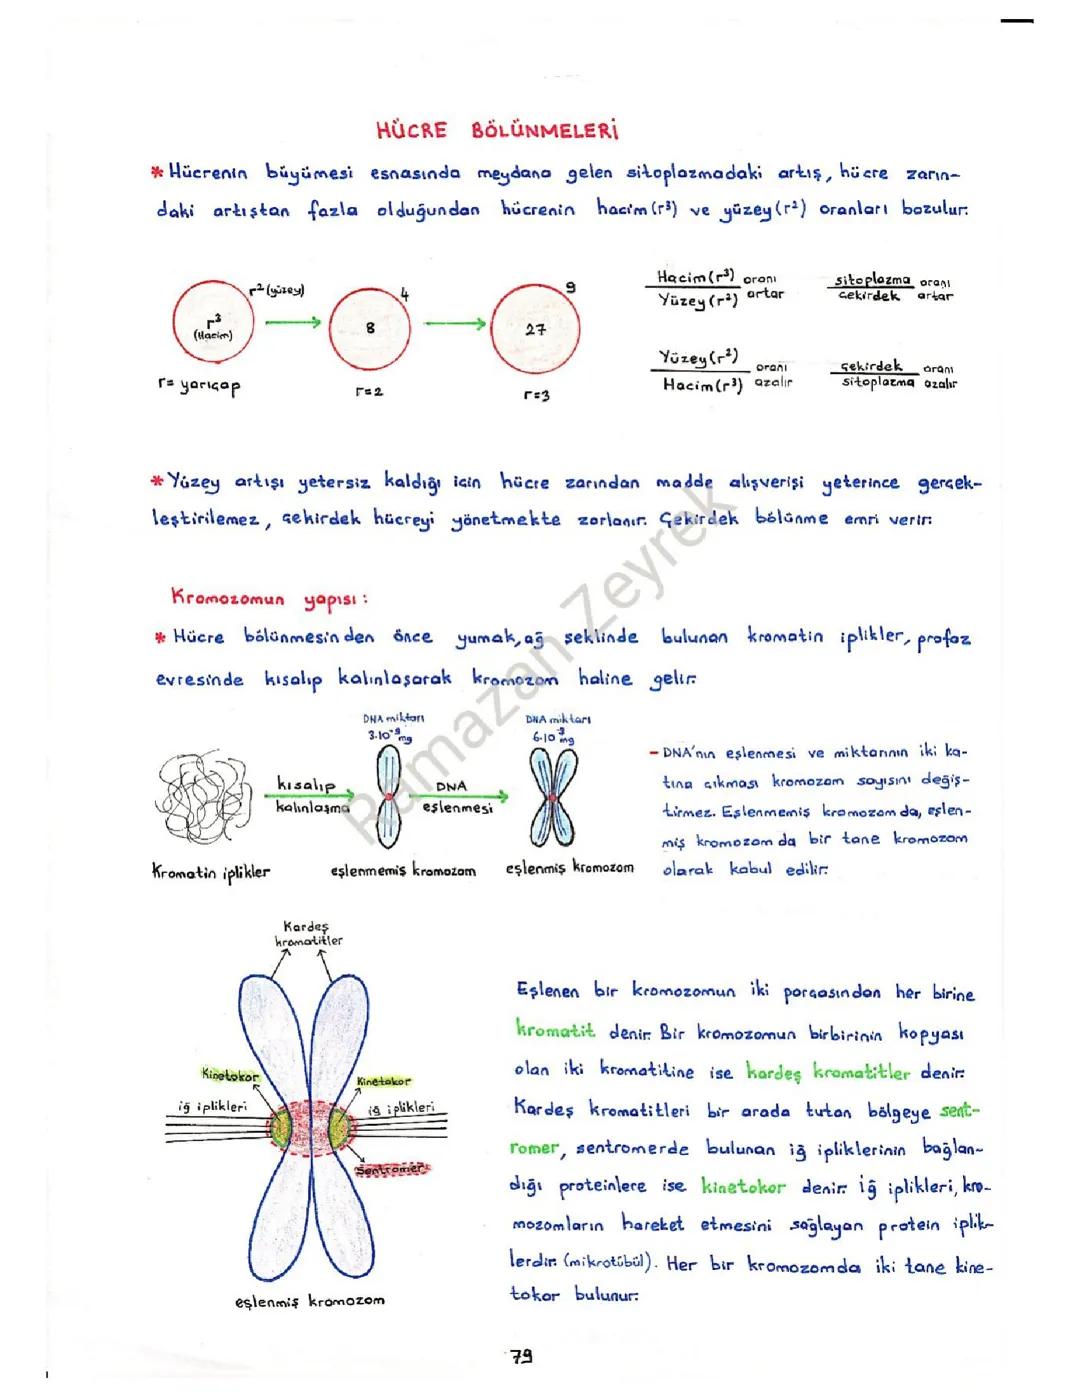 HÜCRE BÖLÜNMELERİ
* Hücrenin büyümesi esnasında meydana gelen sitoplazmadaki artış, hücre zarın-
daki artıştan fazla olduğundan hücrenin hacim (r³) ve yüzey (r²) oranları bozulur.
r² (yüzey)
r³
(Hacim)
r = yarıçap
4
8
r=2
9
27
r=3
Hacim (r³) oranı
Yüzey (r²) artar
sitoplazma oranı
çekirdek artar
Yüzey (r²) oranı
Hacim (r³) azalır
çekirdek oranı
sitoplazma azalır
* Yüzey artışı yetersiz kaldığı için hücre zarından madde alışverişi yeterince gerçek-
leştirilemez, çekirdek hücreyi yönetmekte zorlanır. Çekirdek bölünme emri verir.
Kromozomun yapısı:
* Hücre bölünmesinden önce yumak, ağ şeklinde bulunan kromatin iplikler, profaz
evresinde kısalıp kalınlaşarak kromozom haline gelir.
DNA miktarı
3.10⁻⁹ mg
DNA miktarı
6.10⁻⁹ mg
kısalıp
kalınlaşma
DNA
eşlenmesi
Kromatin iplikler
eşlenmemiş kromozom
eşlenmiş kromozom
- DNA'nın eşlenmesi ve miktarının iki ka-
tına çıkması kromozom sayısını değiş-
tirmez. Eşlenmemiş kromozom da, eşlen-
miş kromozom da bir tane kromozom
olarak kabul edilir.
Kardeş
kromatitler
Kinetokor
Kinetokor
iğ iplikleri
iğ iplikleri
Sentromer
eşlenmiş kromozom
Eşlenen bir kromozomun iki parçasından her birine
kromatit denir. Bir kromozomun birbirinin kopyası
olan iki kromatitine ise kardeş kromatitler denir.
Kardeş kromatitleri bir arada tutan bölgeye sent-
romer, sentromerde bulunan iğ ipliklerinin bağlan-
dığı proteinlere ise kinetokor denir. İğ iplikleri, kro-
mozomların hareket etmesini sağlayan protein iplik-
lerdir. (mikrotübül). Her bir kromozomda iki tane kine-
tokor bulunur.
Ramazan Zeyrek
79